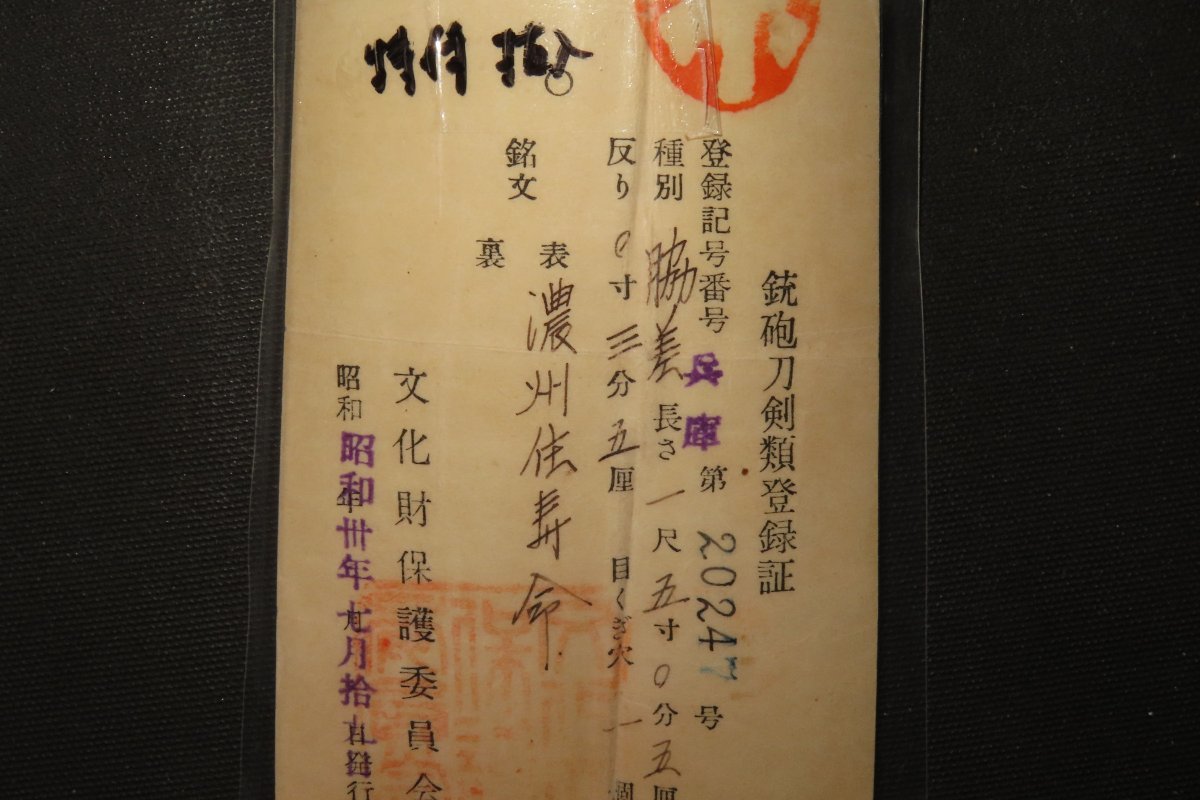 銃砲刀剣類登録証
登録記号番号 兵庫 第 20247 号
種別 脇差 長さ 一尺五寸0分五厘
反り 0寸三分五厘 目くぎ穴 一個
銘文 表 濃州住寿命
裏
文化財保護委員会
昭和 昭和卅年九月拾九日発行